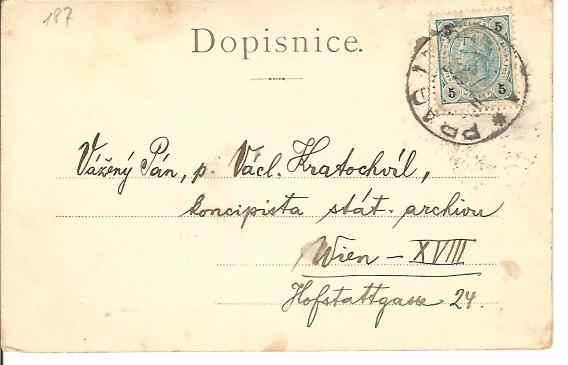 187
Dopisnice.
5 5
5 5
PRAG 1
Vážený Pán, p. Václ. Kratochvíl,
koncipista stát. archivu
Wien – XVIII
Hofstattgasse 24.